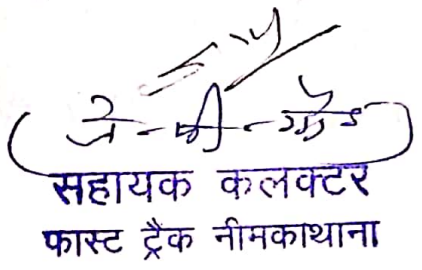 (जे-पी-गौड)
सहायक कलक्टर
फास्ट ट्रैक नीमकाथाना